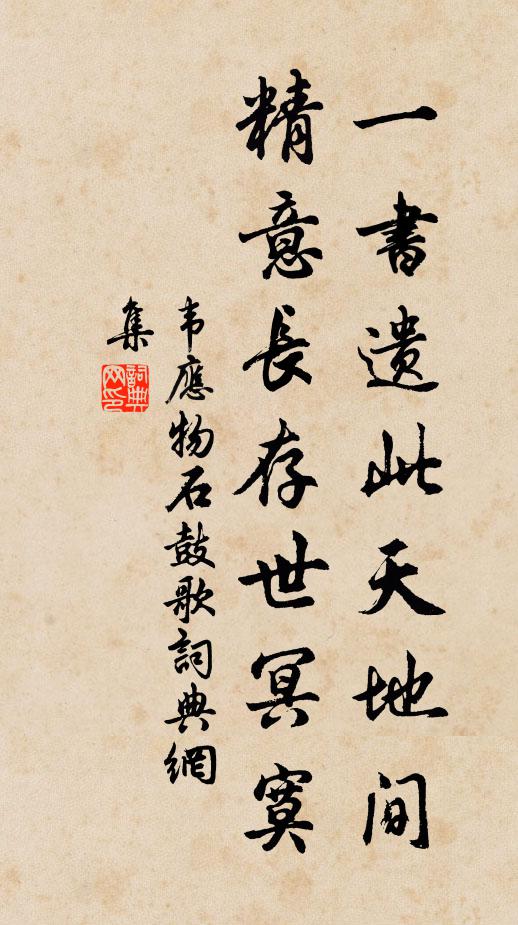 一書遺此天地間
精意長存世冥寞
韦應物石鼓歌詞典網
集
詞典網印